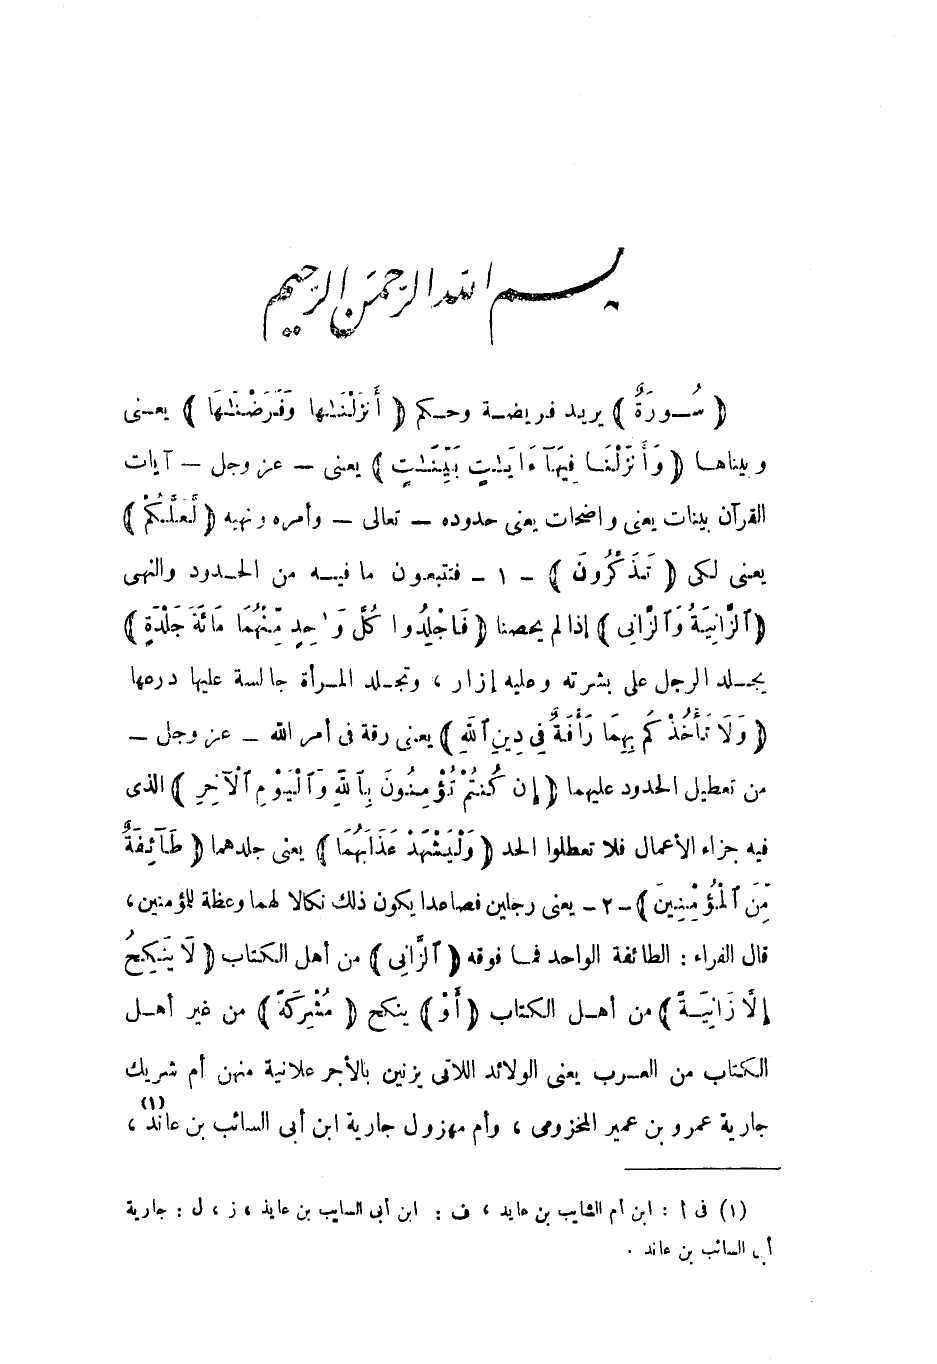 بسم الله الرحمن الرحيم
﴿ سُورَةٌ ﴾ يريد فريضة وحكم ﴿ أَنزَلْنَٰها وَفَرَضْنَٰهَا ﴾ يعنى
وبيناها ﴿ وَأَنزَلْنَا فِيهَآ ءَايَٰتٍ بَيِّنَٰتٍ ﴾ يعنى – عز وجل – آيات
القرآن بينات يعنى واضحات يعنى حدوده – تعالى – وأمره ونهيه ﴿ لَّعَلَّكُمْ ﴾
يعنى لكى ﴿ تَذَكَّرُونَ ﴾ – ١ – فتتبعون ما فيه من الحدود والنهى
﴿ ٱلزَّانِيَةُ وَٱلزَّانِى ﴾ إذا لم يحصنا ﴿ فَٱجْلِدُوا كُلَّ وَٰحِدٍ مِّنْهُمَا مَائَةَ جَلْدَةٍ ﴾
يجلد الرجل على بشرته وعليه إزار ، وتجلد المرأة جالسة عليها درعها
﴿ وَلَا تَأْخُذْكُم بِهِمَا رَأْفَةٌ فِى دِينِ ٱللَّهِ ﴾ يعنى رقة فى أمر الله – عز وجل –
من تعطيل الحدود عليهما ﴿ إِن كُنتُمْ تُؤْمِنُونَ بِٱللَّهِ وَٱلْيَوْمِ ٱلْآخِرِ ﴾ الذى
فيه جزاء الأعمال فلا تعطلوا الحد ﴿ وَلْيَشْهَدْ عَذَابَهُمَا ﴾ يعنى جلدهما ﴿ طَآئِفَةٌ
مِّنَ ٱلْمُؤْمِنِينَ ﴾ – ٢ – يعنى رجلين فصاعدا يكون ذلك نكالا لهما وعظة للمؤمنين ،
قال الفراء : الطائفة الواحد فما فوقه ﴿ ٱلزَّانِى ﴾ من أهل الكتاب ﴿ لَا يَنكِحُ
إِلَّا زَانِيَةً ﴾ من أهل الكتاب ﴿ أَوْ ﴾ ينكح ﴿ مُشْرِكَةً ﴾ من غير أهل
الكتاب من العرب يعنى الولائد اللاتى يزنين بالأجر علانية منهن أم شريك
جارية عمرو بن عمير المخزومى ، وأم مهزول جارية ابن أبى السائب بن عاند (١) ،
(١) فى أ : ابن أم الشايب بن عايد ، ف : ابن أبى السايب بن عايذ ، ز ، ل : جارية
أبى السائب بن عاند .